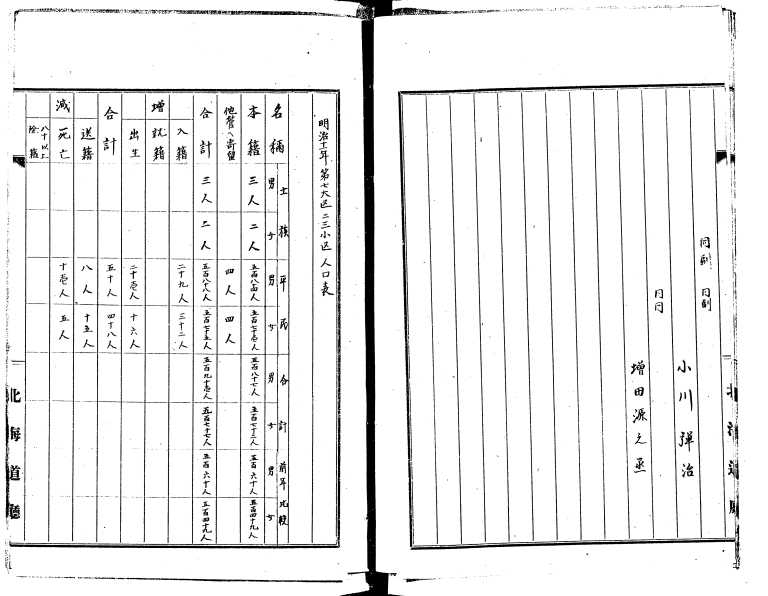 同副 同副
小川弾治
同同
増田源之丞
北海道廳
明治十一年第七大区二三小区人口表
名稱 士族 男 女 平民 男 女 合計 男 女 前年比較 男 女
本籍 三人 二人 五百八十四人 五百七十壱人 五百八十七人 五百七十三人 五百六十人 五百四十九人
他管ヘ寄留 四人 四人
合計 三人 二人 五百八十八人 五百七十五人 五百九十壱人 五百七十七人 五百六十人 五百四十九人
入籍 二十九人 三十二人
増 就籍
出生 二十壱人 十六人
合計 五十人 四十八人
送籍 八人 十五人
減 死亡 十壱人 五人
八十以上除籍
北海道廳